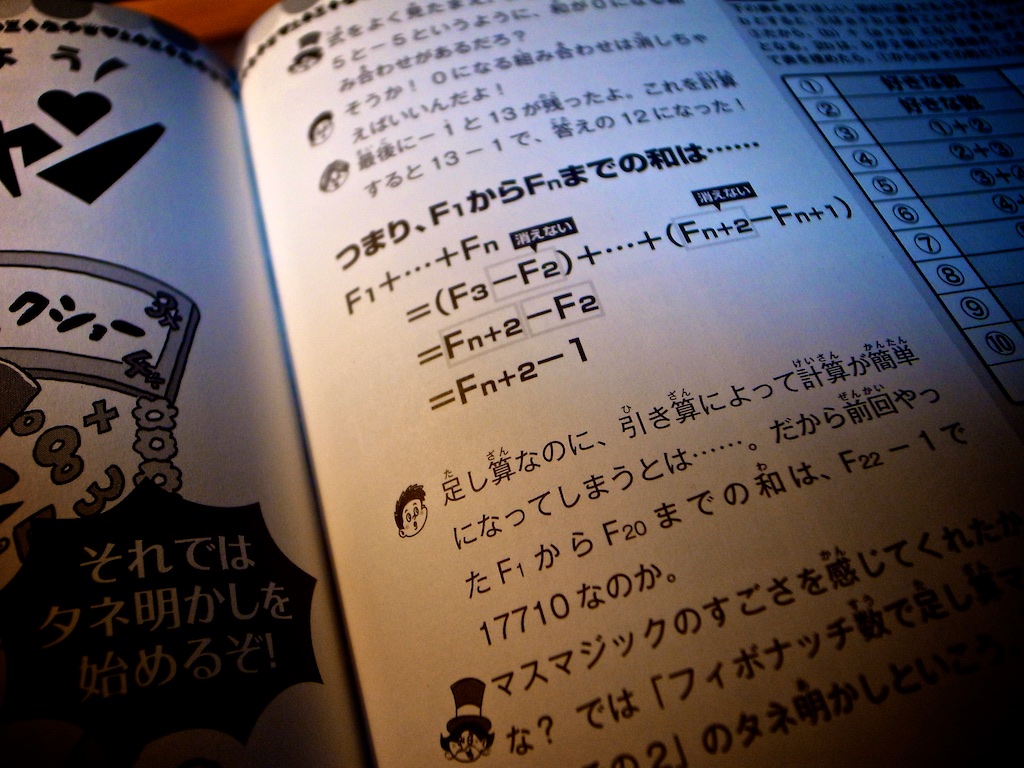 ょう
クション
それでは
タネ明かしを
始めるぞ!
式をよく見たまえ。
5と−5というように、和が0になる組
み合わせがあるだろ?
そうか! 0になる組み合わせは消しちゃ
えばいいんだよ!
最後に−1と13が残ったよ。これを計算
すると13−1で、答えの12になった!
つまり、F1からFnまでの和は……
F1+…+Fn
消えない
消えない
=(F3−F2)+…+(Fn+2−Fn+1)
=Fn+2−F2
=Fn+2−1
足し算なのに、引き算によって計算が簡単
になってしまうとは……。だから前回やっ
たF1からF20までの和は、F22−1で
17710なのか。
マスマジックのすごさを感じてくれたか
な? では「フィボナッチ数で足し算マ
の2」のタネ明かしといこう。
① 好きな数
② 好きな数
③ ①+②
④ ②+③
⑤ ③+④
⑥
⑦
⑧
⑨
⑩